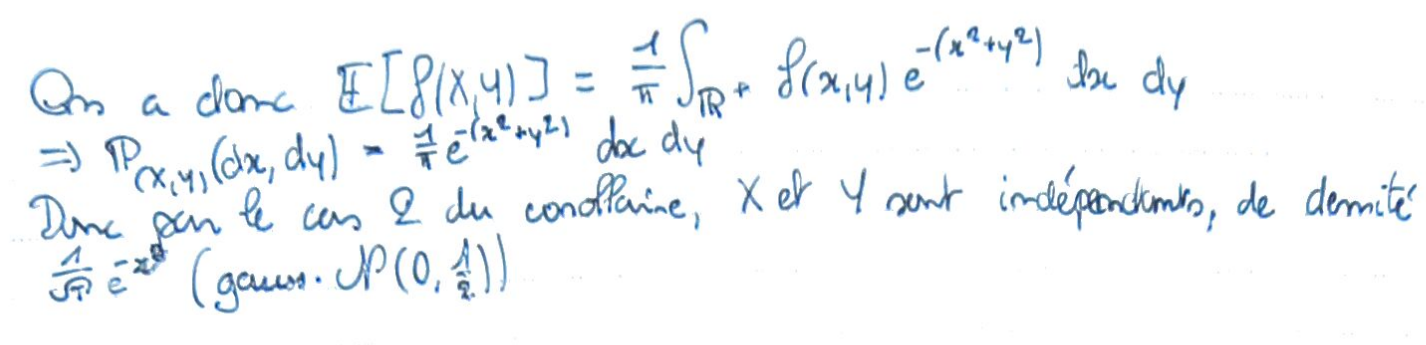 On a donc 𝔼[f(X,Y)] = 1/π ∫_ℝ+ f(x,y) e^{-(x²+y²)} dx dy
=> ℙ_(X,Y)(dx, dy) = 1/π e^{-(x²+y²)} dx dy
Donc par le cas 2 du corollaire, X et Y sont indépendants, de densité
1/√π e^{-x²} (gauss. 𝒩(0, 1/2))